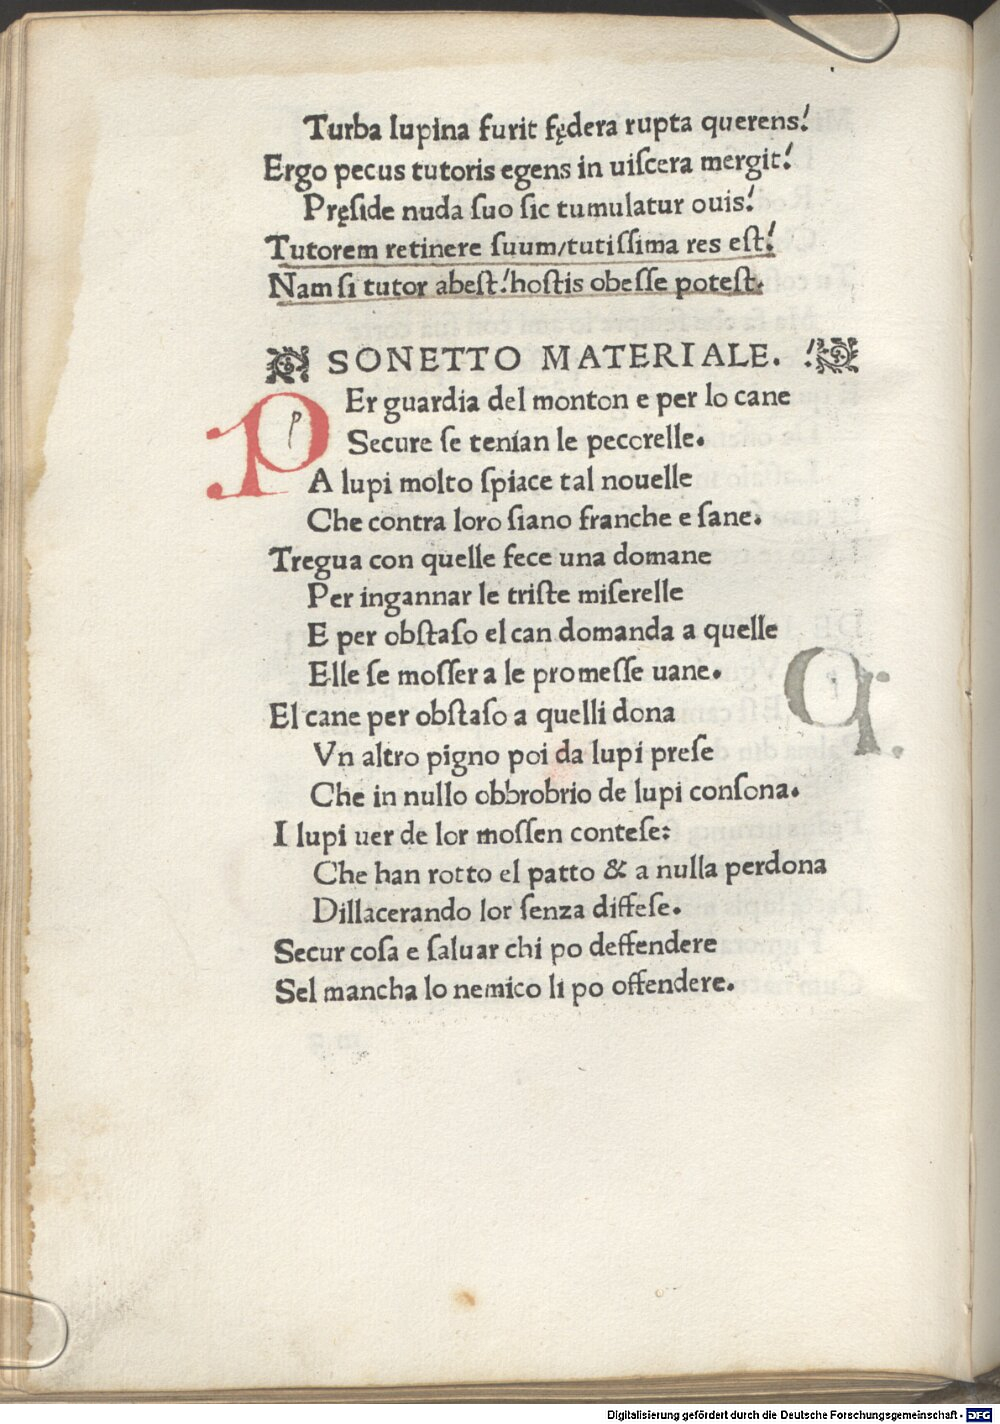 Turba lupina furit fędera rupta querens!
Ergo pecus tutoris egens in uiſcera mergit!
Pręſide nuda ſuo ſic tumulatur ouis!
Tutorem retinere ſuum/tutiſſima res eſt!
Nam ſi tutor abeſt!hoſtis obeſſe poteſt.
SONETTO MATERIALE.!
PEr guardia del monton e per lo cane
Secure ſe tenían le pecorelle.
A lupi molto ſpiace tal nouelle
Che contra loro ſiano franche e ſane.
Tregua con quelle fece una domane
Per ingannar le triſte miſerelle
E per obſtaſo el can domanda a quelle
Elle ſe moſſer a le promeſſe uane.
El cane per obſtaſo a quelli dona
Vn altro pigno poi da lupi preſe
Che in nullo obbrobrio de lupi conſona.
I lupi uer de lor moſſen conteſe:
Che han rotto el patto & a nulla perdona
Dillacerando lor ſenza diffeſe.
Secur coſa e ſaluar chi po deffendere
Sel mancha lo nemico li po offendere.
Digitalisierung gefördert durch die Deutsche Forschungsgemeinschaft - DFG